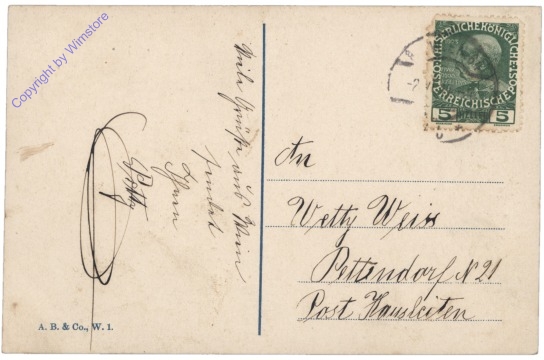 Copyright by Wimstore
Viele Grüße aus Wien
sendet
Ihnen
KAISERLICHE KÖNIGLICHE POST
ÖSTERREICHISCHE
5 HELLER 5
An
Wetty Weis
Pettendorf N 21
Post Hausleiten
A. B. & Co., W. 1.